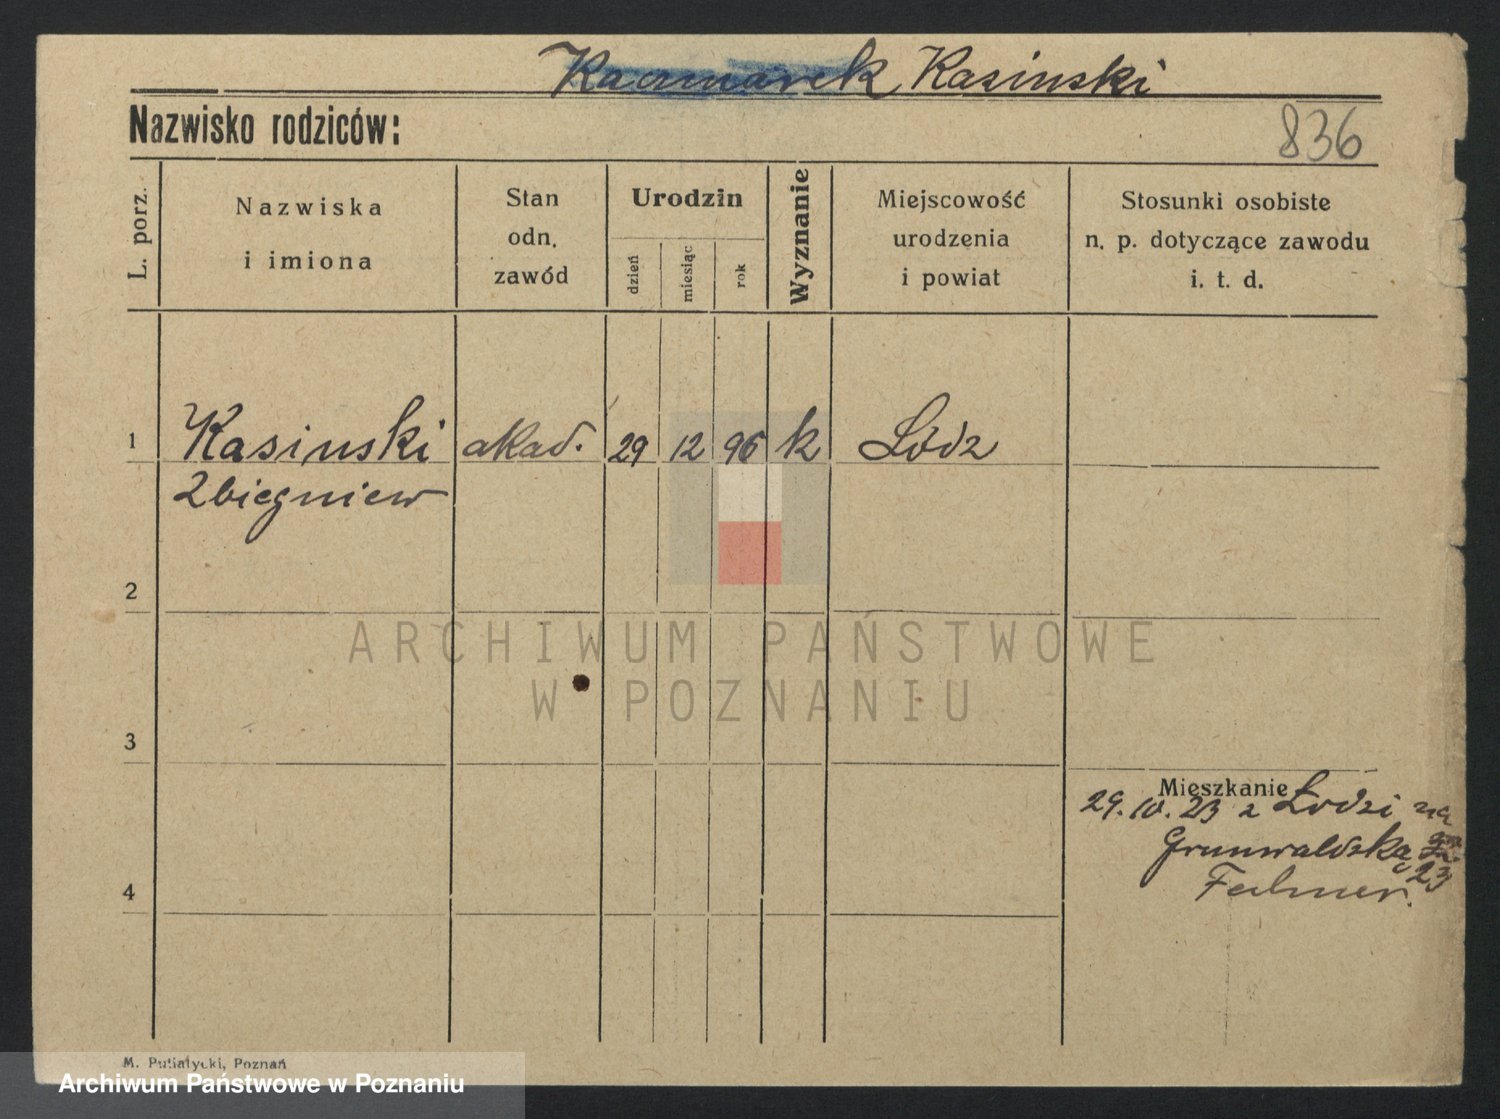 Kaczmarek Kasinski
Nazwisko rodziców:
836
L. porz.
Nazwiska
i imiona
Stan
odn.
zawód
Urodzin
dzień
miesiąc
rok
Wyznanie
Miejscowość
urodzenia
i powiat
Stosunki osobiste
n. p. dotyczące zawodu
i. t. d.
1
Kasinski akad. 29 12 96 k Łódz
Zbiegniew
2
ARCHIWUM PAŃSTWOWE
W POZNANIU
3
Mieszkanie
29. 10. 23 z Łodzi na
Grunwaldską
23
4
M. Putiatycki, Poznań
Archiwum Państwowe w Poznaniu